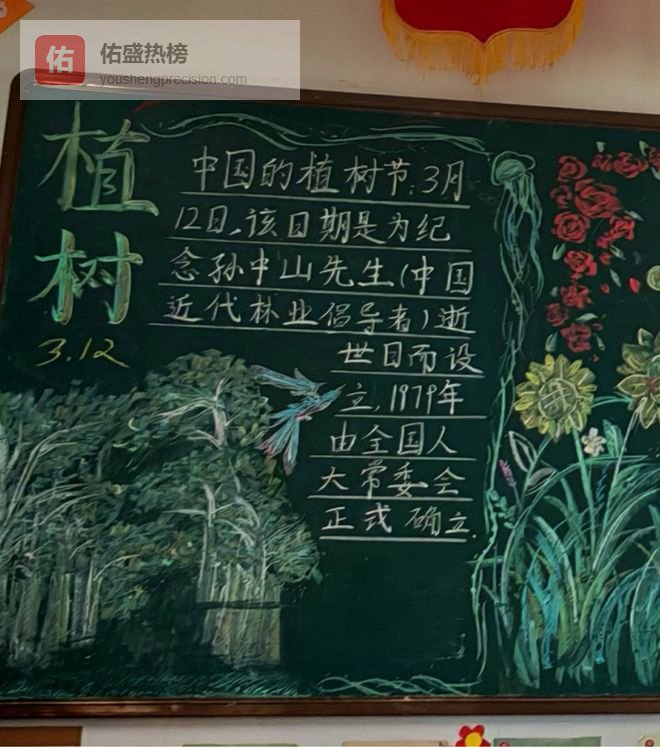 佑
佑盛热榜
youshengprecision.com
植树
3.12
中国的植树节:3月
12日,该日期是为纪
念孙中山先生(中国
近代林业倡导者)逝
世日而设
立,1979年
由全国人
大常委会
正式确立.